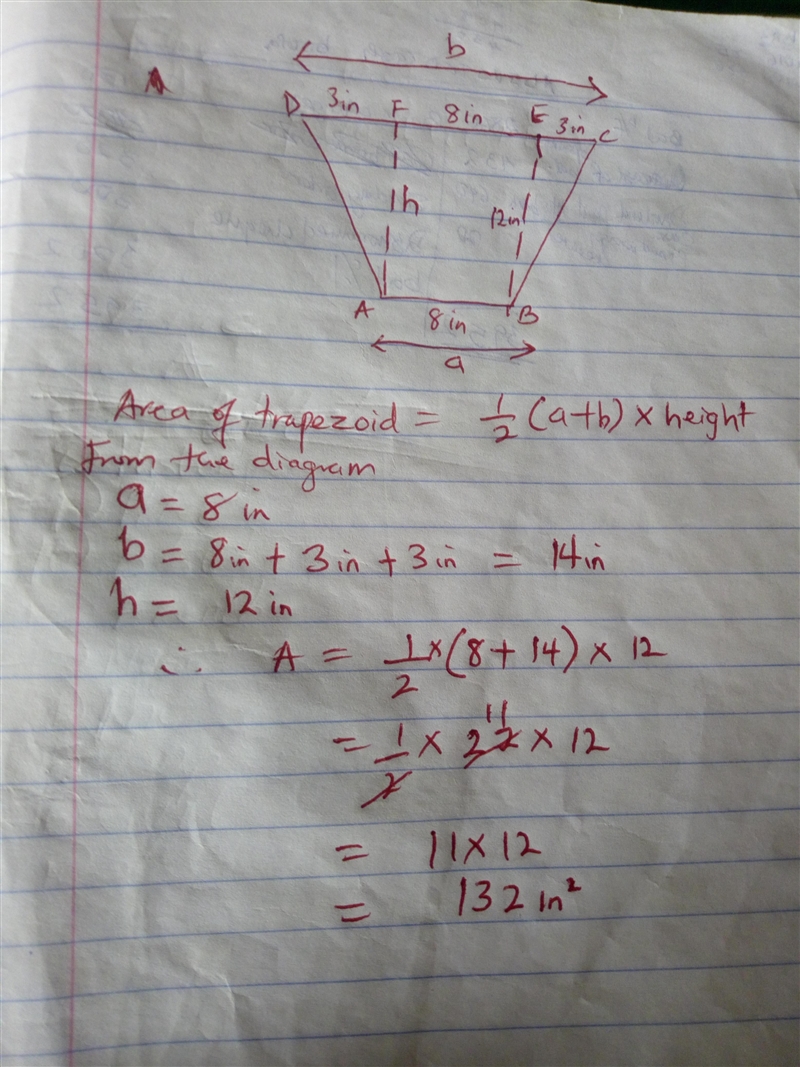 b
A
D 3in F 8in E 3in C
h 12in
A 8in B
a
Area of trapezoid = 1/2 (a+b) × height
From the diagram
a = 8 in
b = 8in + 3in + 3in = 14in
h = 12 in
∴ A = 1/2 × (8 + 14) × 12
= 1/2 × 22 11 × 12
= 11 × 12
= 132 in²